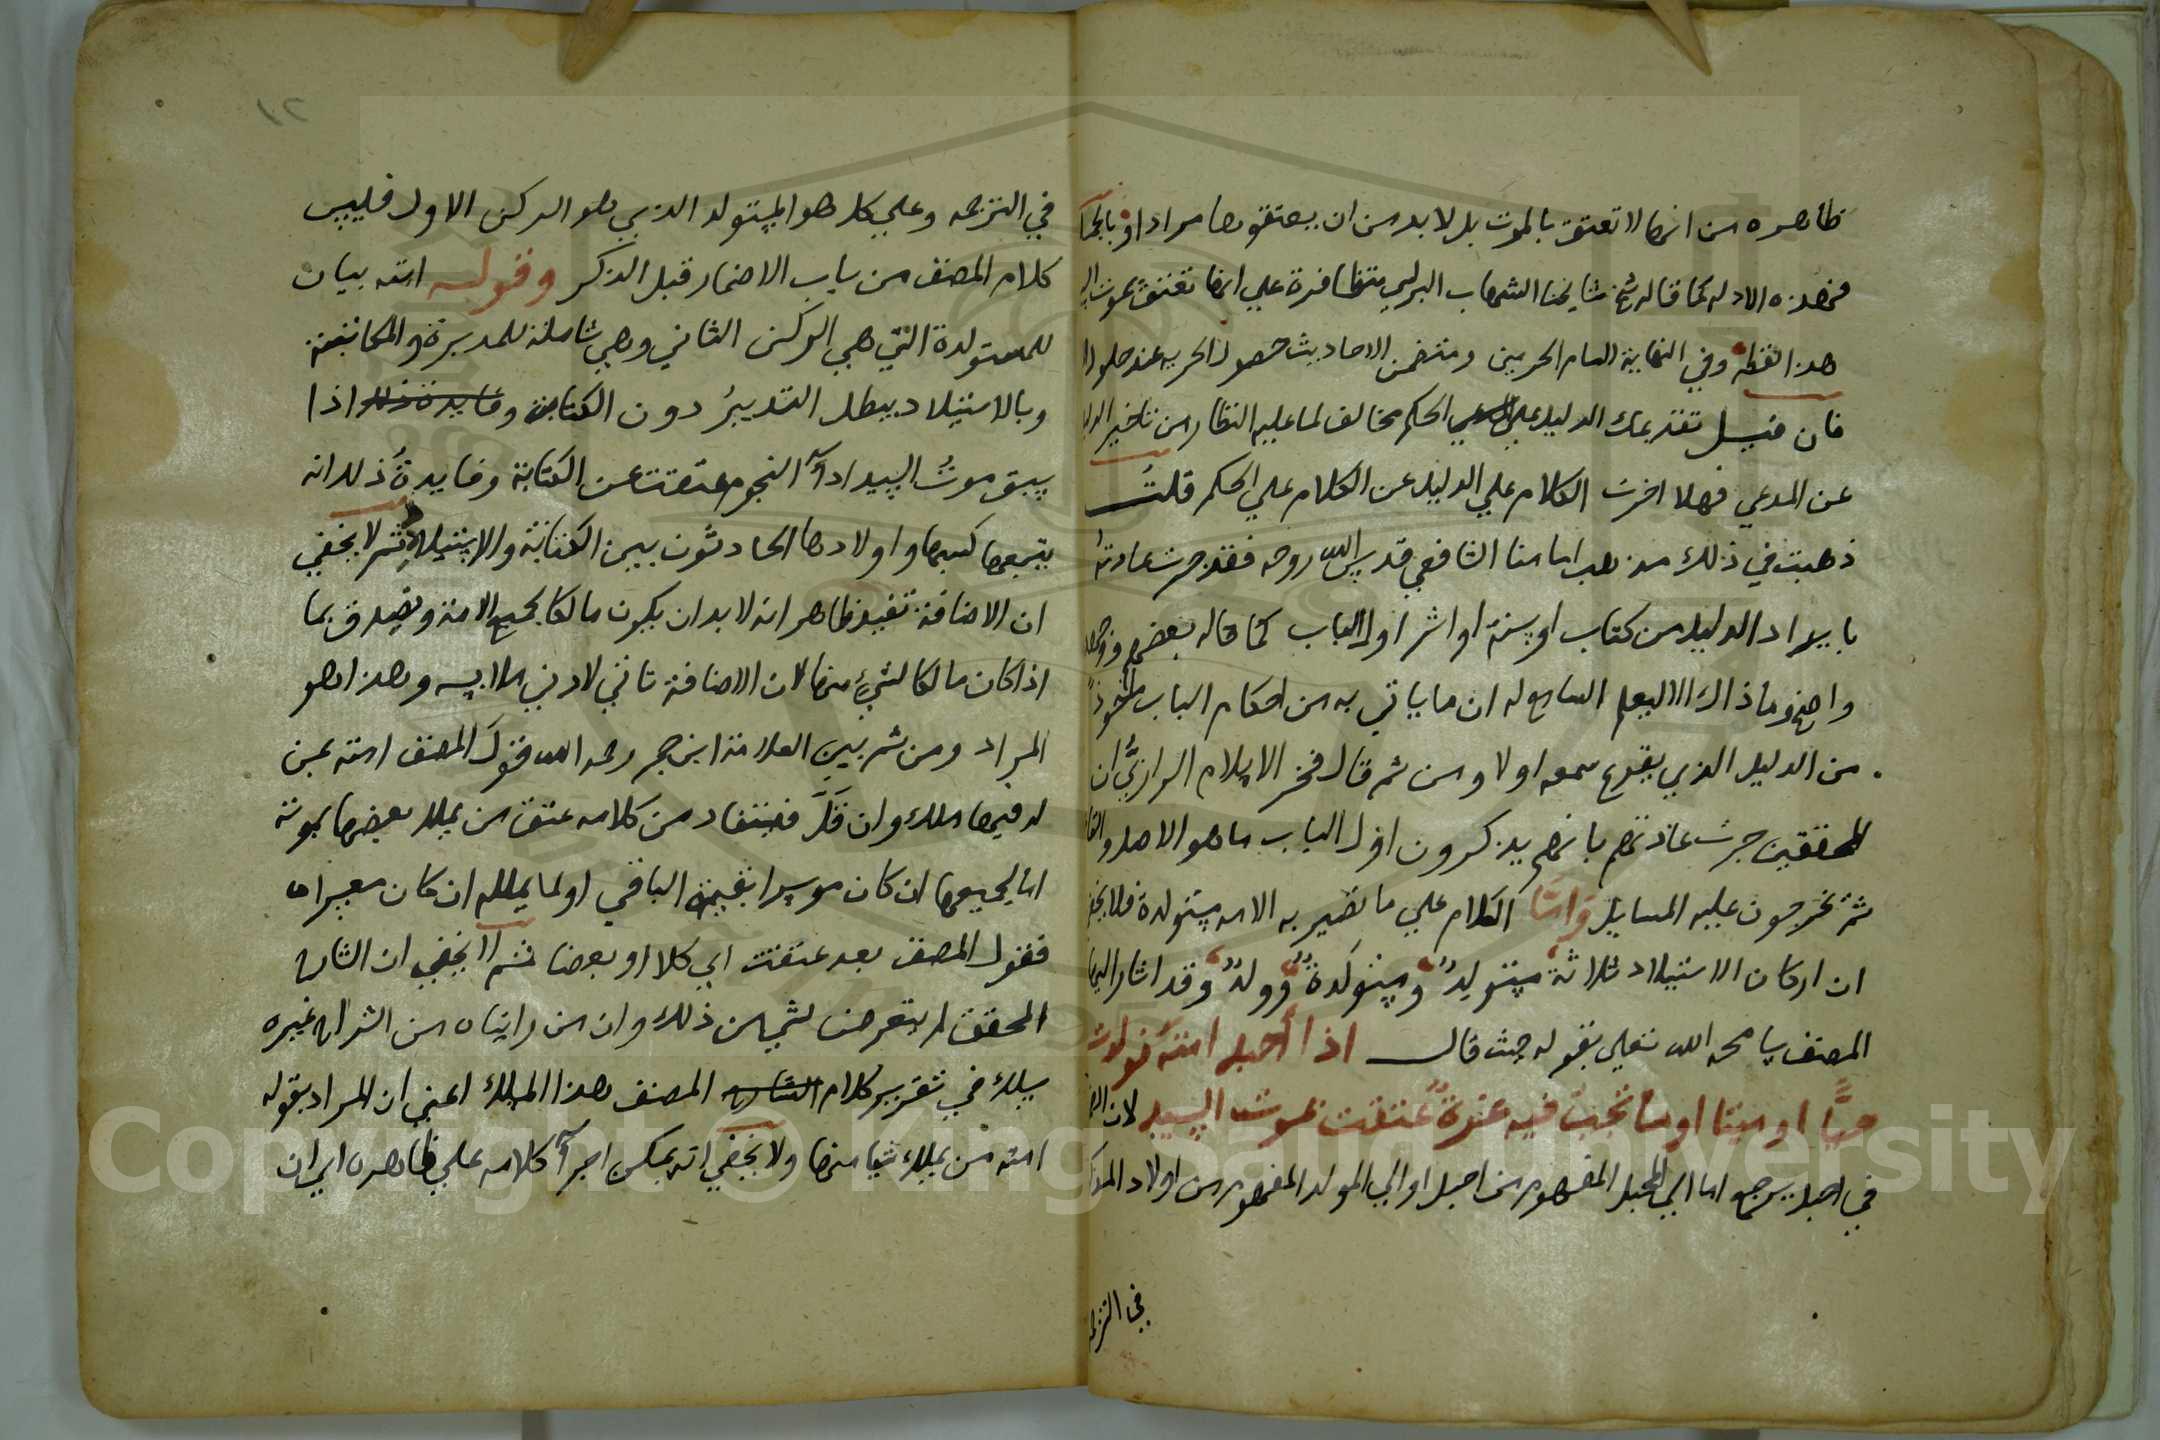 ظاهره من انها لا تعتق بالموت بل لابد من ان يعتقوها مرادا وبالجملة
فهذه الادلة كما قاله شيخ مشايخنا الشهاب البرلسي متظافرة علي انها تعتق بموت
هذا لفظه وفي النهاية لامام الحرمين ومتضمن الاحاديث حصول الحرية عند حلول
فان قيل تقديمك الدليل علي الحكم مخالف لما عليه النظار من تاخير الدليل
عن المدعي فهلا اخرت الكلام علي الدليل عن الكلام علي الحكم قلت
ذهبت في ذلك مذهب امامنا الشافعي قدس الله روحه فقد جرت عادته
بايراد الدليل من كتاب او سنة او اثر اول الباب كما قاله بعضهم
واضح وما ذاك الا ليعلم السامع له ان ما ياتي به من احكام الباب ماخوذ
من الدليل الذي يقرع سمعه اولا ومن ثم قال فخر الاسلام الرازي ان
المحققين جرت عادتهم بانهم يذكرون اول الباب ما هو الاصل
ثم يخرجون عليه المسايل واما الكلام علي ما تصير به الامه مستولدة فلا يخفي
ان اركان الاستيلاد ثلاثة مستولد ومستولدة وولد وقد اشار اليها
المصنف سامحه الله تعلي بقوله حيث قال اذا أحبل امته فولدت
حيًّا او ميتا او ما تجب فيه غرةٌ عتقت بموت السيد لان
في احبل يرجع اما الي المحبل المفهوم من احبل او الي المولد المفهوم من اولاد
في الترجمه
١٢
في الترجمه وعلي كل هو المستولد الذي هو الركن الاول فليس
كلام المصنف من باب الاضمار قبل الذكر وقوله امته بيان
للمستولدة التي هي الركن الثاني وهي شاملة للمدبرة والمكاتبة
وبالاستيلاد يبطل التدبيرُ دون الكتابة وفايدة ذلك اذا
سبق موتُ السيد ادآ النجوم عتقت عن الكتابة وفايدةُ ذلك انه
يتبعها كسبها واولادها الحادثون بين الكتابة والاستيلاد ثم لا يخفي
ان الاضافة تفيد ظاهر انه لابد ان يكون مالكا لجميع الامة ويصدق بما
اذا كان مالكا لشيء منها لان الاضافة تاتي لادني ملابسه وهذا هو
المراد ومن ثم بين العلامة ابن حجر رحمه الله قول المصنف امته بمن
له فيها ملك وان قلَّ فيستفاد من كلامه عتق من يملك بعضها بموته
اما لجميعها ان كان موسرا بقيمة الباقي او لما يملكه ان كان معسرا
فقول المصنف بعد عتقت اي كلا او بعضا ثم لا يخفي ان الشارح
المحقق لم يتعرض لشي من ذلك وان من رايناه من الشراح غيره
سلك في تقرير كلام الشارح المصنف هذا المسلك اعني ان المراد بقوله
امته من يملك شيا منها ولا يخفي انه يمكن اجرآ كلامه علي ظاهره اي ان